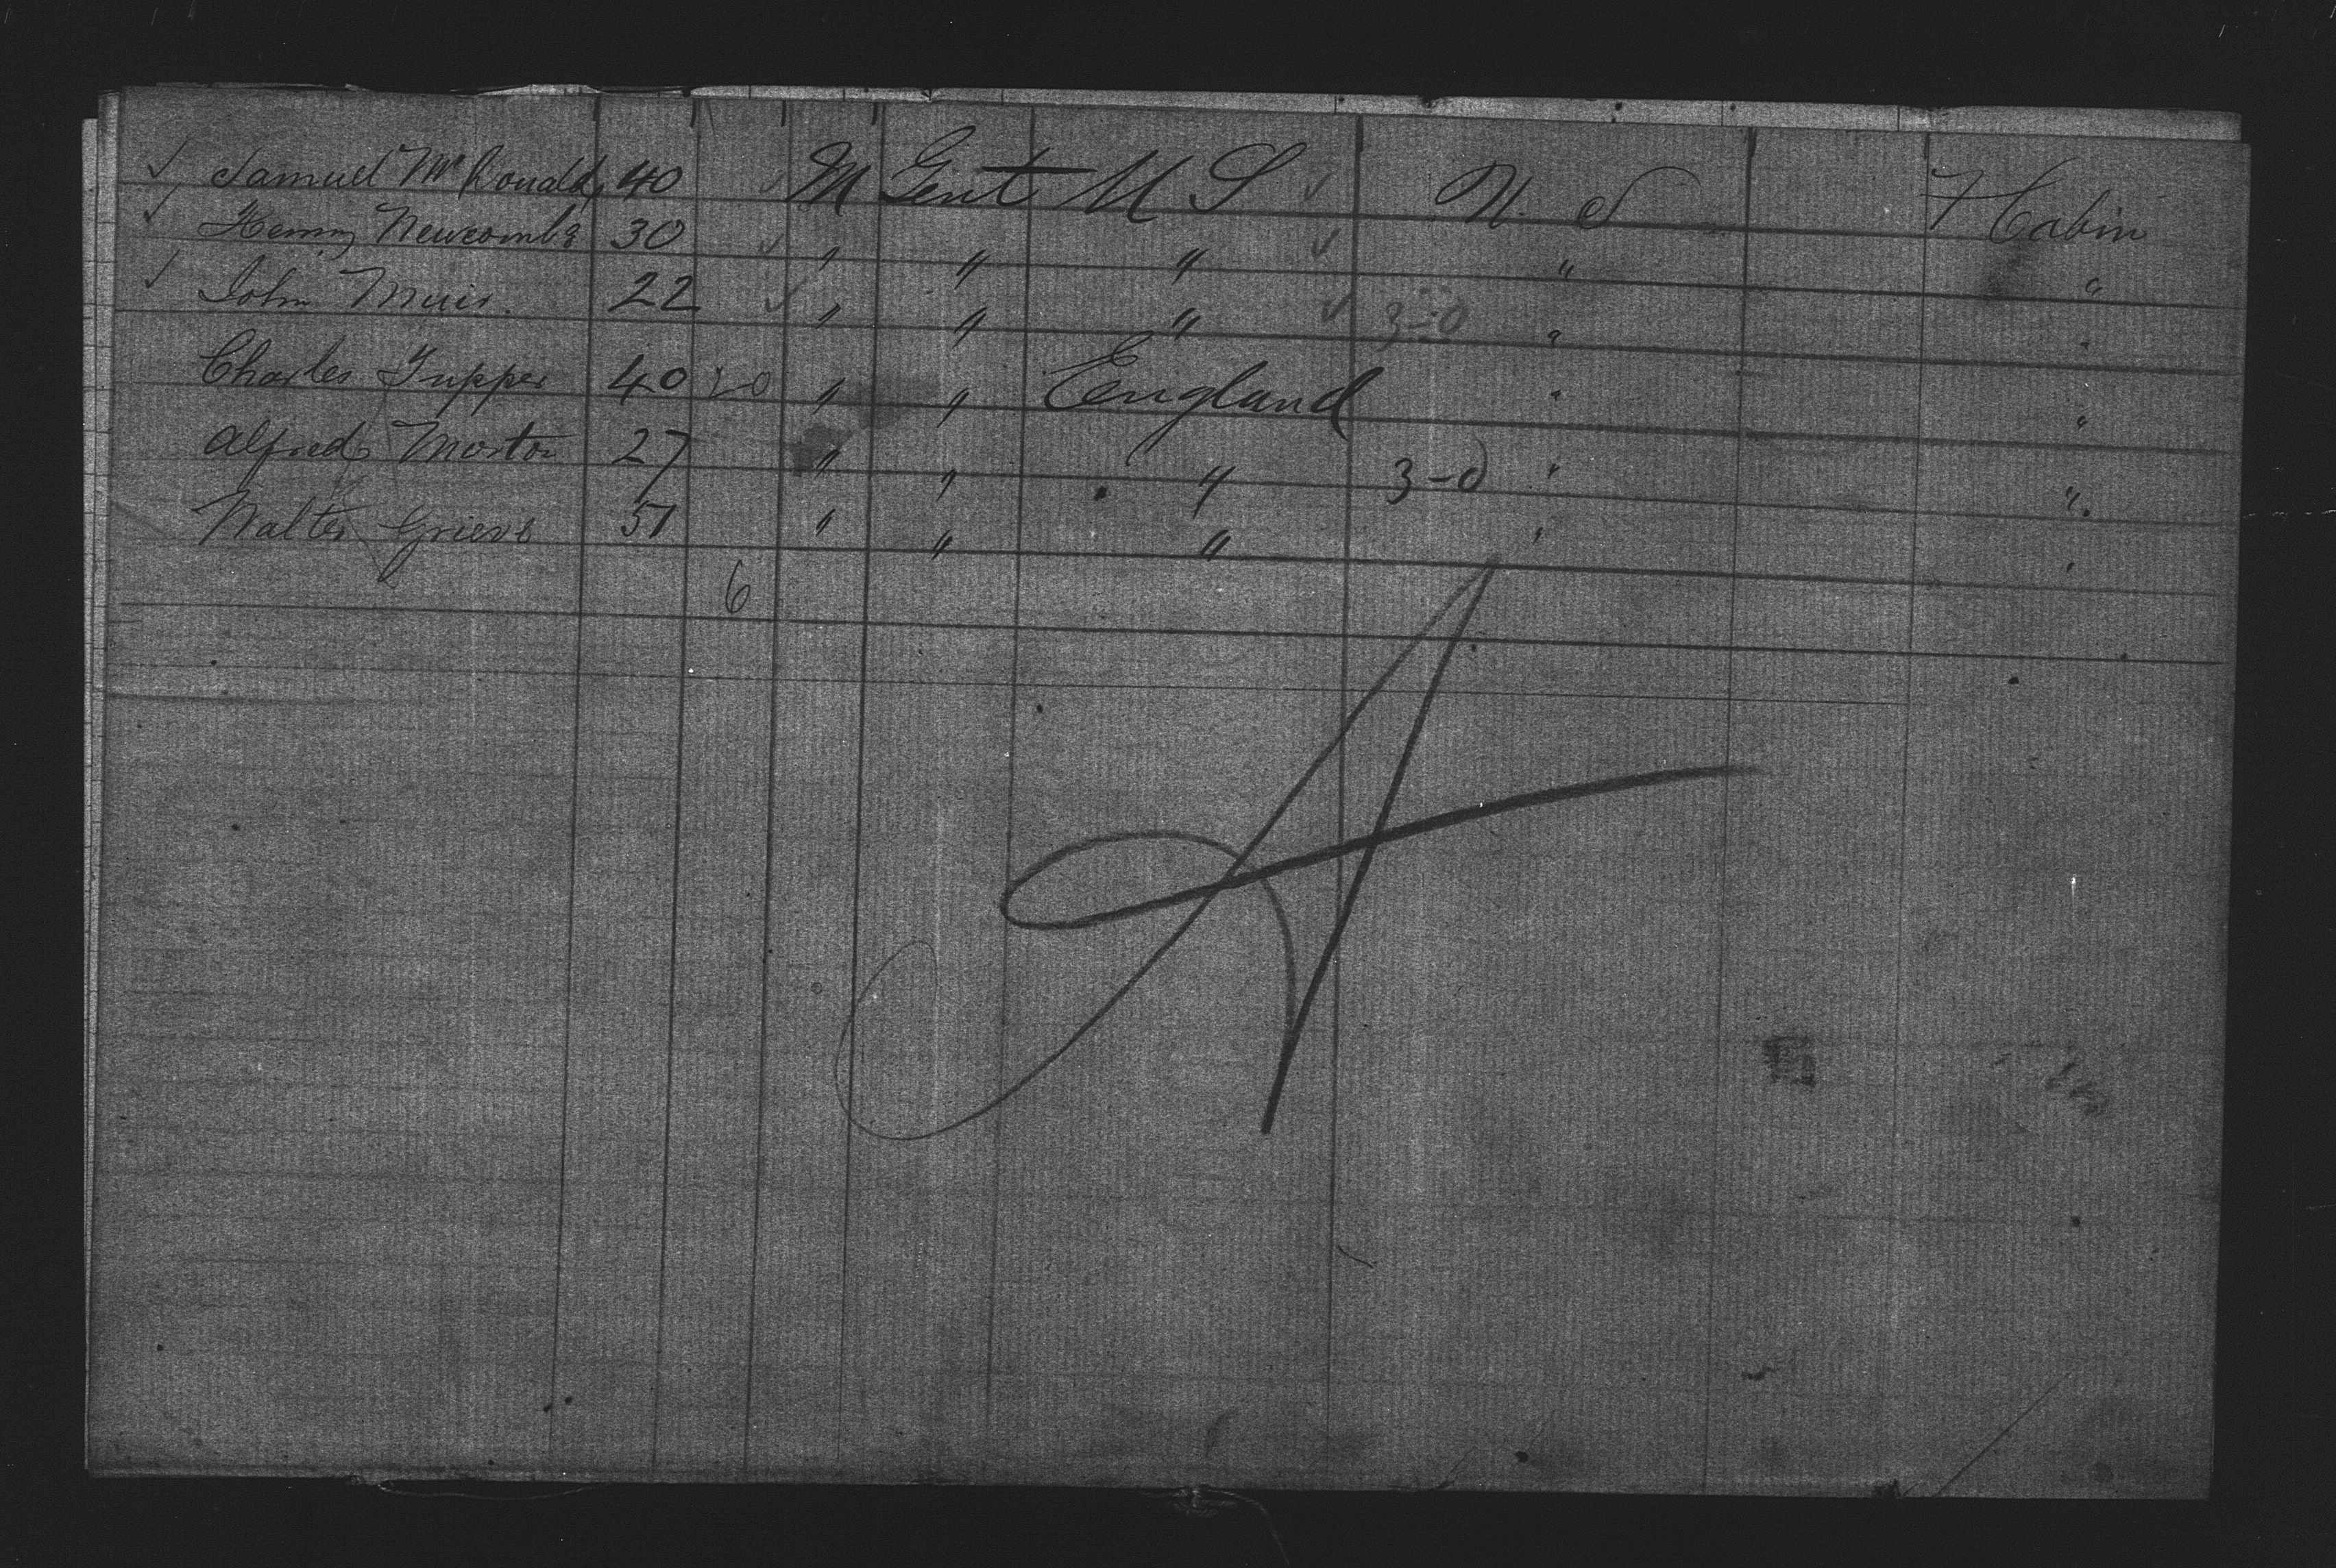 ✓ Samuel McDonald 40 ✓ M Gent U S ✓ N. S H Cabin
✓ Henry Newcomb 30 ✓ " " " ✓ " "
✓ John Muir 22 ✓ " " " ✓ 3-0 " "
Charles Tupper 40 20 " " England " "
Alfred Morton 27 " " " 3-0 " "
Walter Grieve 51 " " " " "
6